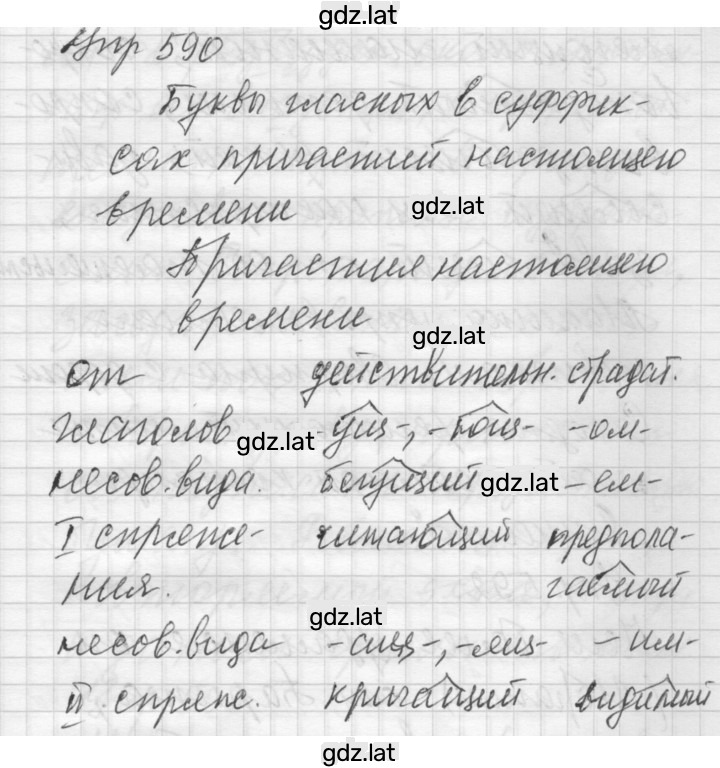 gdz.lat
Упр 590
Буквы гласных в суффик-
сах причастий настоящего
времени
gdz.lat
Причастия настоящего
времени
gdz.lat
от действительн. страдат.
глаголов -ущ-, -ющ- -ом-
gdz.lat
несов. вида. бегущий -ем-
gdz.lat
I спряже- читающий предпола-
ния. гаемый
gdz.lat
несов. вида -ащ-, -ящ- -им-
II. спряж. кричащий видимый
gdz.lat